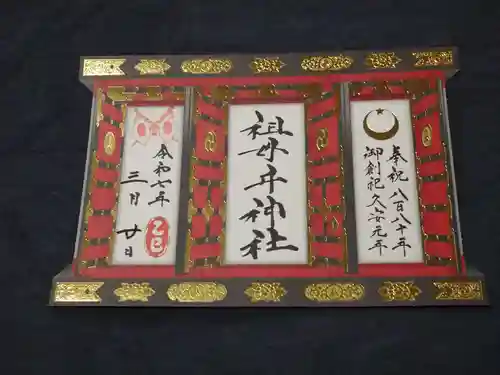 奉祝 八百八十年
御創祀 久安元年
祖母井神社
令和七年
三月
廿日
乙巳